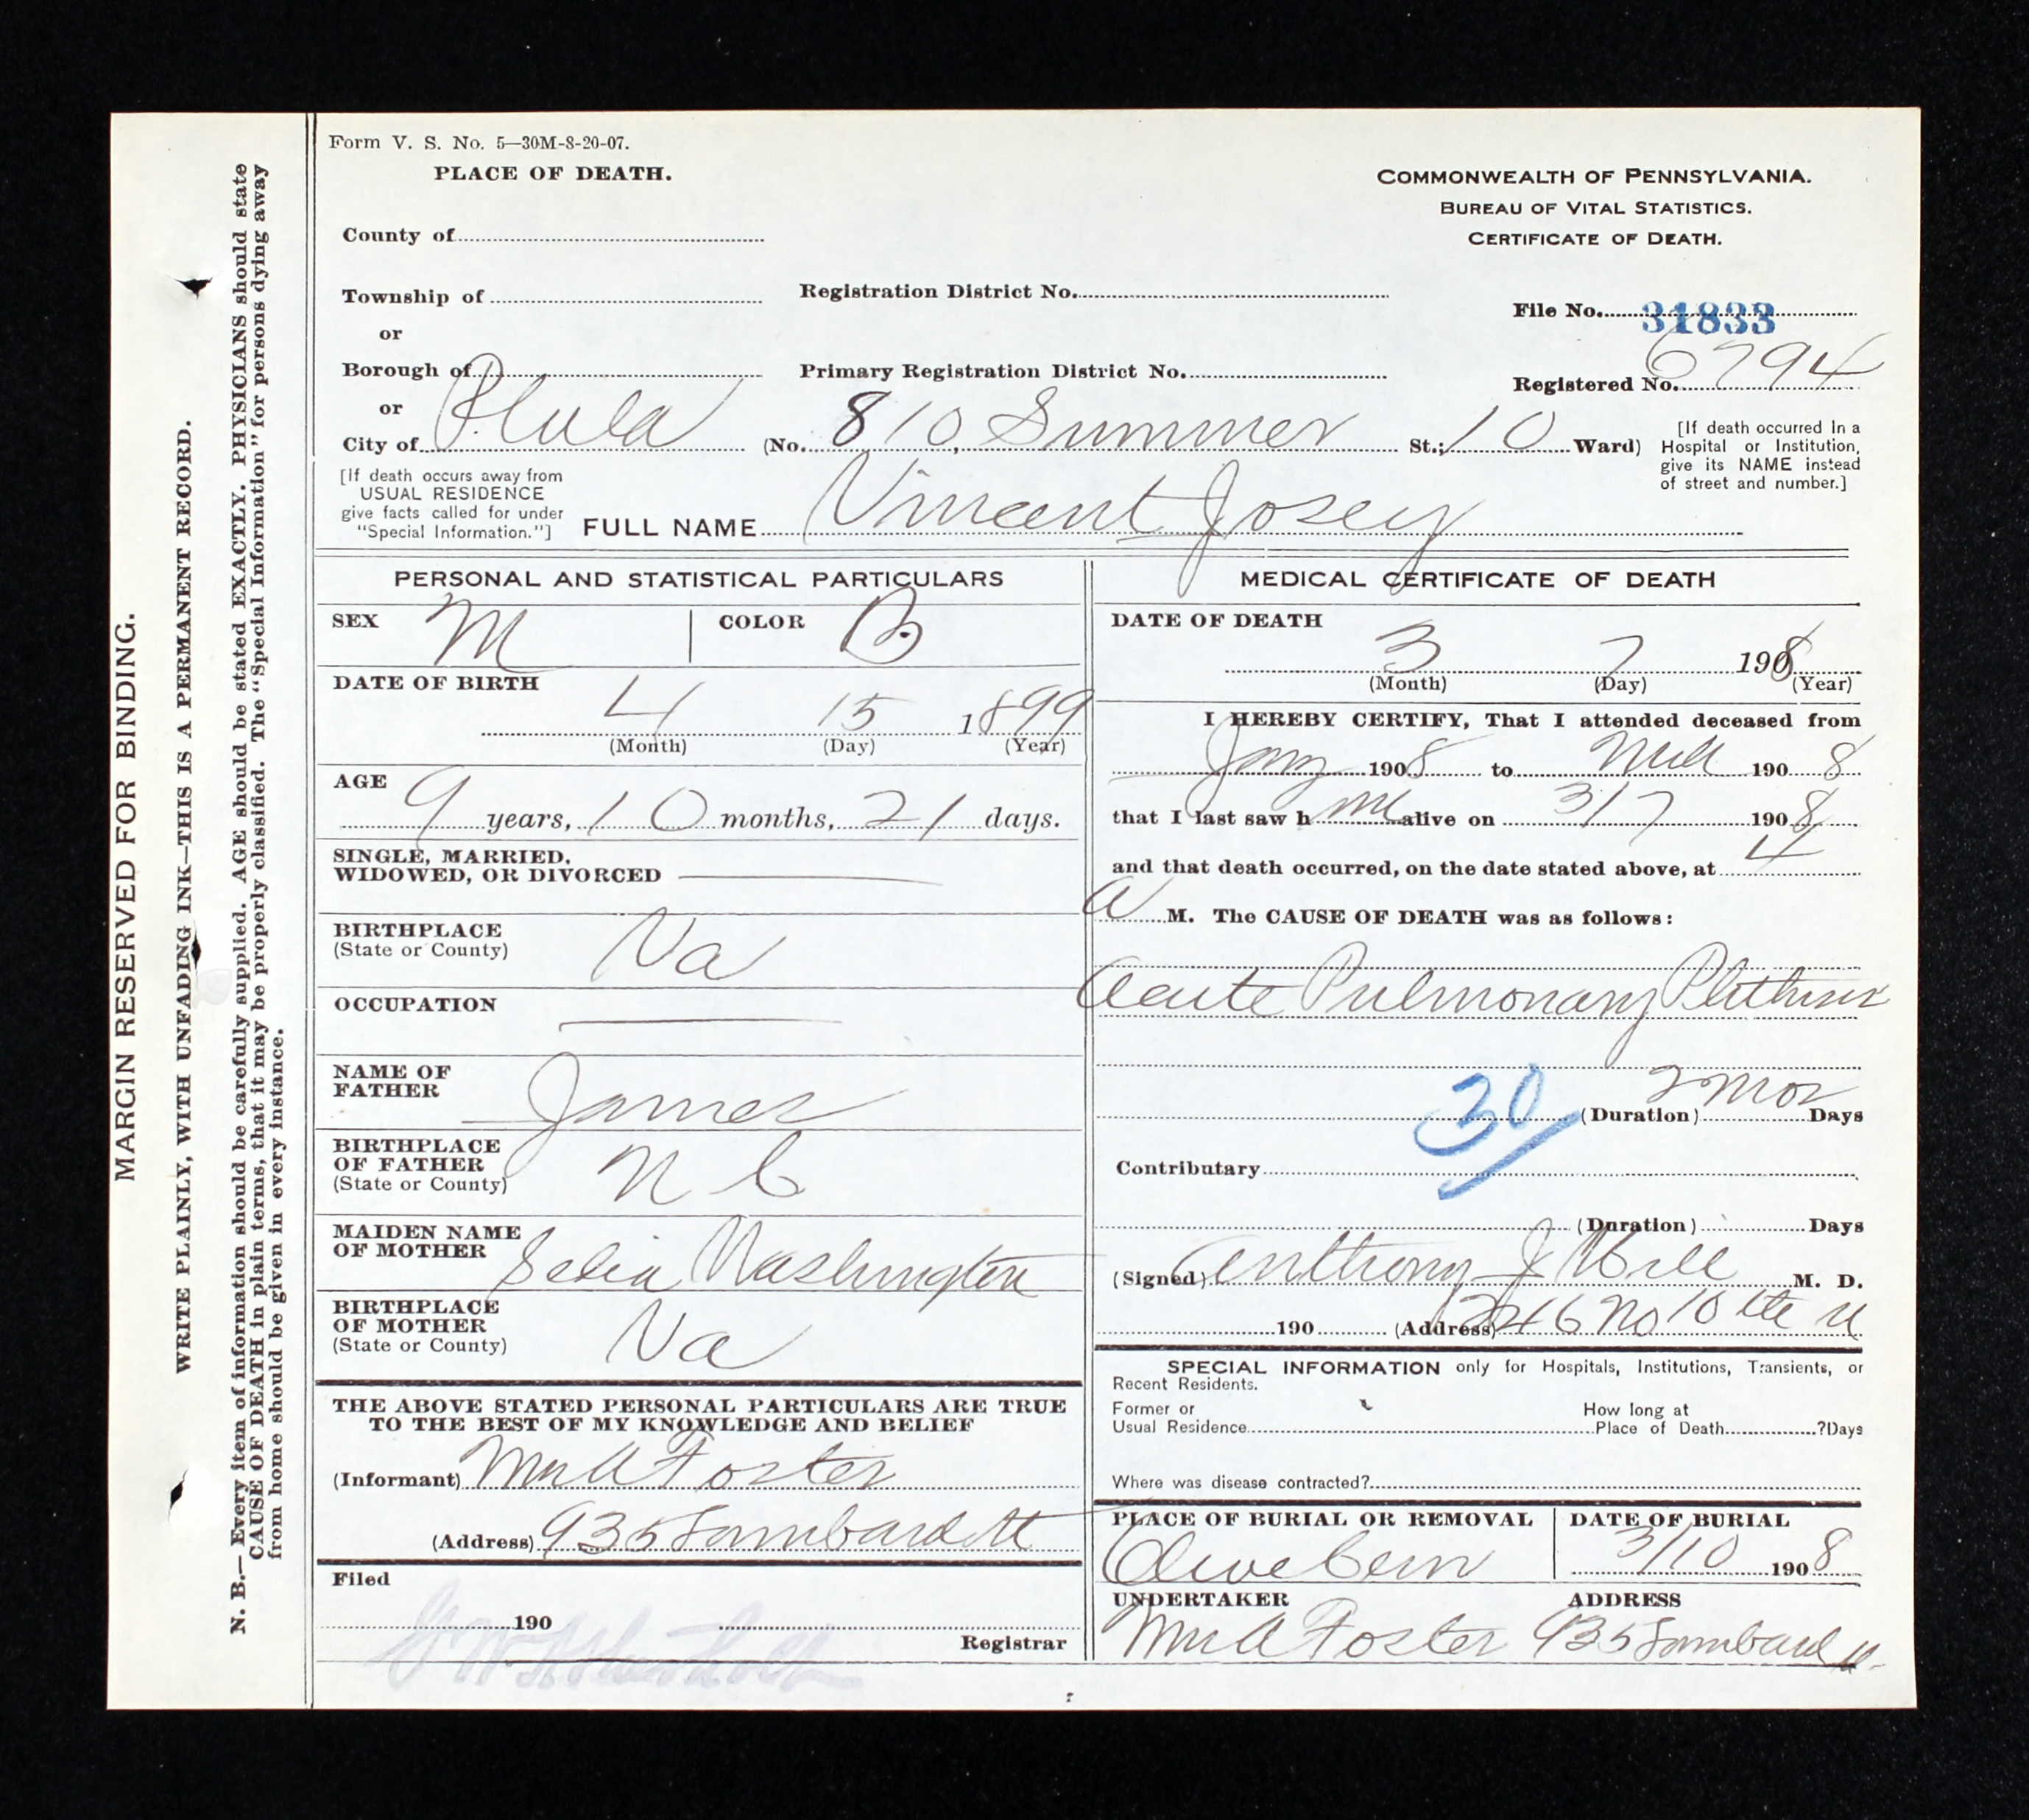 MARGIN RESERVED FOR BINDING.
WRITE PLAINLY, WITH UNFADING INK—THIS IS A PERMANENT RECORD.
N. B.—Every item of information should be carefully supplied. AGE should be stated EXACTLY. PHYSICIANS should state
CAUSE OF DEATH in plain terms, that it may be properly classified. The "Special Information" for persons dying away
from home should be given in every instance.
Form V. S. No. 5—30M-8-20-07.
PLACE OF DEATH.
COMMONWEALTH OF PENNSYLVANIA.
BUREAU OF VITAL STATISTICS.
CERTIFICATE OF DEATH.
County of
Township of
Registration District No.
File No. 31833
or
Borough of
Primary Registration District No.
Registered No. 6794
or
City of Phila (No. 810, Summer St.; 10 Ward)
[If death occurred in a
Hospital or Institution,
give its NAME instead
of street and number.]
[If death occurs away from
USUAL RESIDENCE
give facts called for under
"Special Information."]
FULL NAME Vincent Josey
PERSONAL AND STATISTICAL PARTICULARS
SEX M
COLOR B
DATE OF BIRTH
4 15 1899
(Month) (Day) (Year)
AGE
9 years, 10 months, 21 days.
SINGLE, MARRIED,
WIDOWED, OR DIVORCED
BIRTHPLACE
(State or County)
Va
OCCUPATION
NAME OF
FATHER
James
BIRTHPLACE
OF FATHER
(State or County)
N C
MAIDEN NAME
OF MOTHER
Selia Washington
BIRTHPLACE
OF MOTHER
(State or County)
Va
THE ABOVE STATED PERSONAL PARTICULARS ARE TRUE
TO THE BEST OF MY KNOWLEDGE AND BELIEF
(Informant) Wm A Foster
(Address) 935 Lombard St
Filed
190
Registrar
MEDICAL CERTIFICATE OF DEATH
DATE OF DEATH
3 7 1908
(Month) (Day) (Year)
I HEREBY CERTIFY, That I attended deceased from
Jany 1908 to 1908
that I last saw h im alive on 3/7 1908
and that death occurred, on the date stated above, at 4
a M. The CAUSE OF DEATH was as follows:
Acute Pulmonary Phthisis
30
(Duration) 2 mos Days
Contributary
(Duration) Days
(Signed) Anthony J M. D.
190 (Address) 1246 No 10 th St
SPECIAL INFORMATION only for Hospitals, Institutions, Transients, or
Recent Residents.
Former or
Usual Residence
How long at
Place of Death ?Days
Where was disease contracted?
PLACE OF BURIAL OR REMOVAL
Olive Cem
DATE OF BURIAL
3/10 1908
UNDERTAKER
Wm A Foster
ADDRESS
935 Lombard St